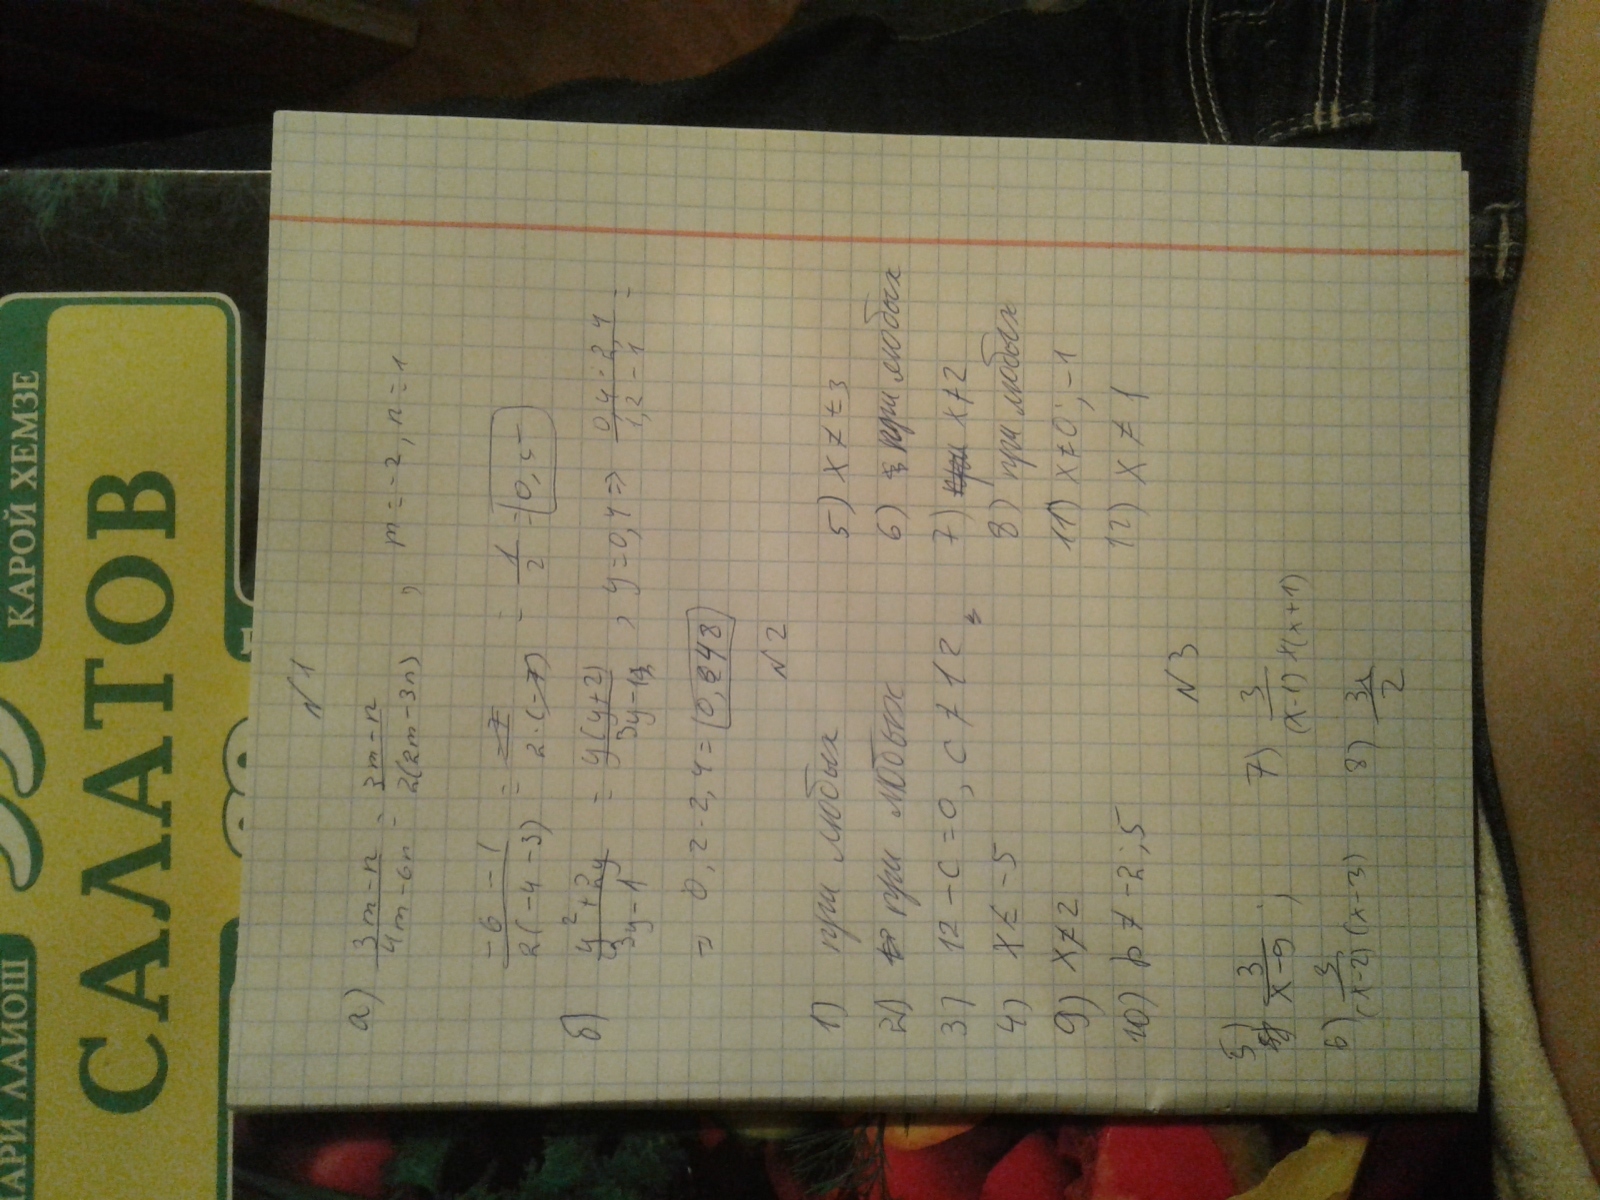 КАРОЙ ХЕМЗЕ
САЛАТОВ
АРИ ЛАЙОШ
N1
а) (3m-n)/(4m-6n) = (3m-n)/(2(2m-3n)) , m=-2, n=1
(-6-1)/(2(-4-3)) = (-7)/(2·(-7)) = 1/2 = 0,5
б) (y²+2y)/(3y-1) = (y(y+2))/(3y-1) , y=0,4 => (0,4·2,4)/(1,2-1) =
N2
1) при любых
2) при любых
3) 12-c=0, c≠12
4) x≠-5
9) x≠2
10) p≠-2;5
5) x≠±3
6) при любых
7) x≠2
8) при любых
11) x≠0;-1
12) x≠1
N3
5) 3/(x-9) ;
6) 3/((x-2)(x-3))
7) 3/((x-1)*(x+1))
8) 3x/2